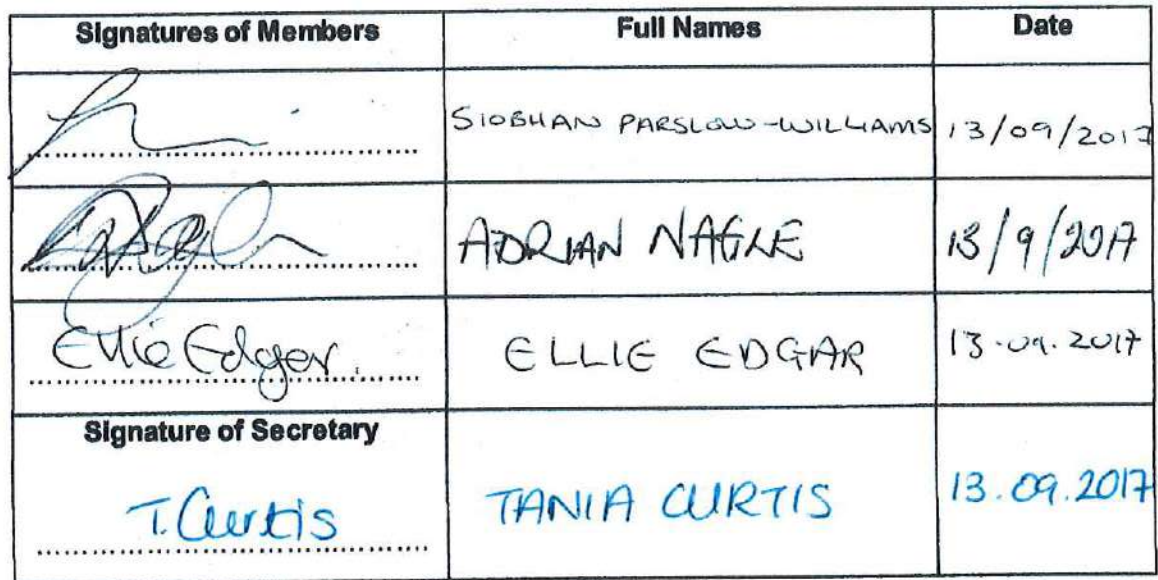 Signatures of Members Full Names Date
SIOBHAN PARSLOW-WILLIAMS 13/09/2017
ADRIAN NAGLE 13/9/2017
Ellie Edgar. ELLIE EDGAR 13.09.2017
Signature of Secretary
T. Curtis TANIA CURTIS 13.09.2017